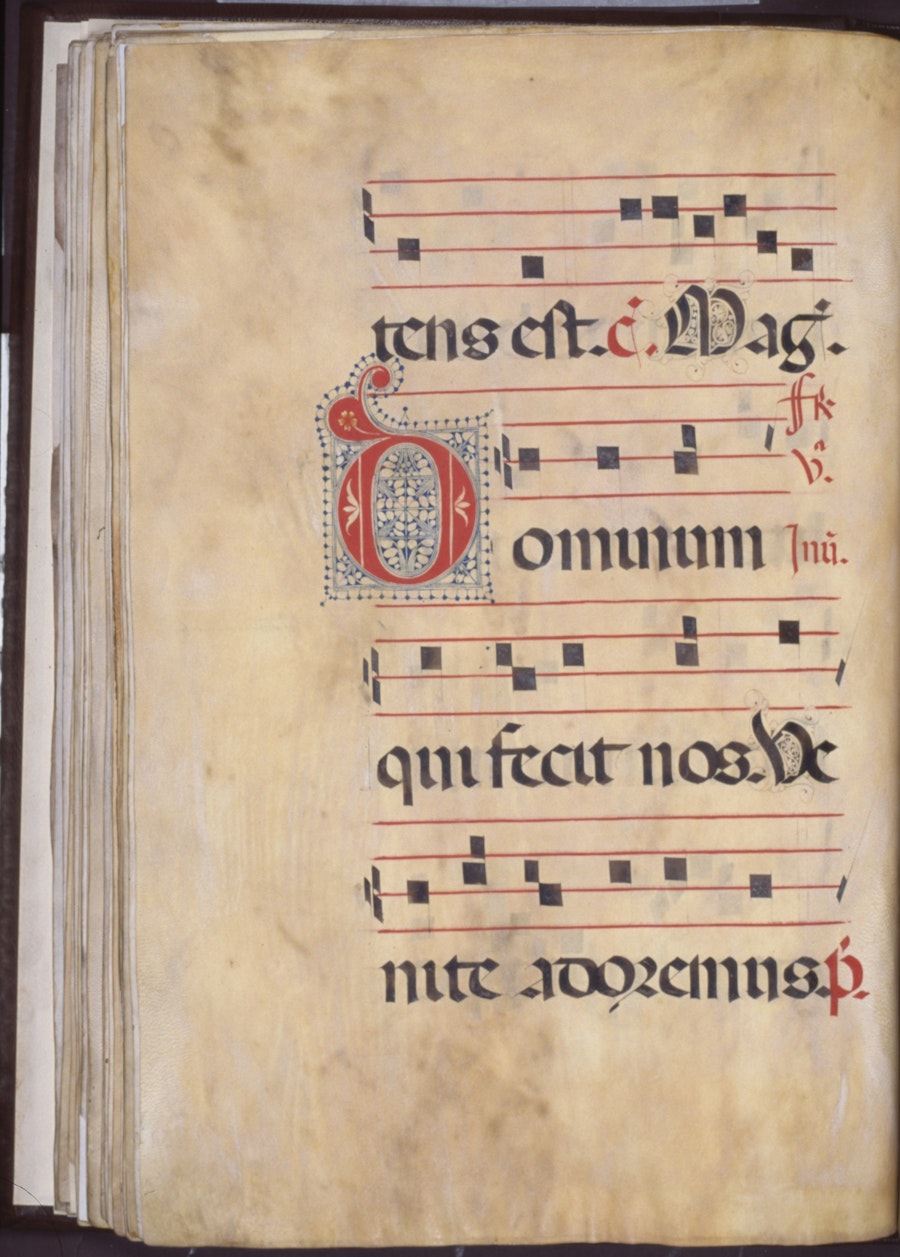 tens est. c̃. Mag̃.
fr̃
vª.
Dominum Inũ.
qui fecit nos. Ve
nite adoremus. p̃.